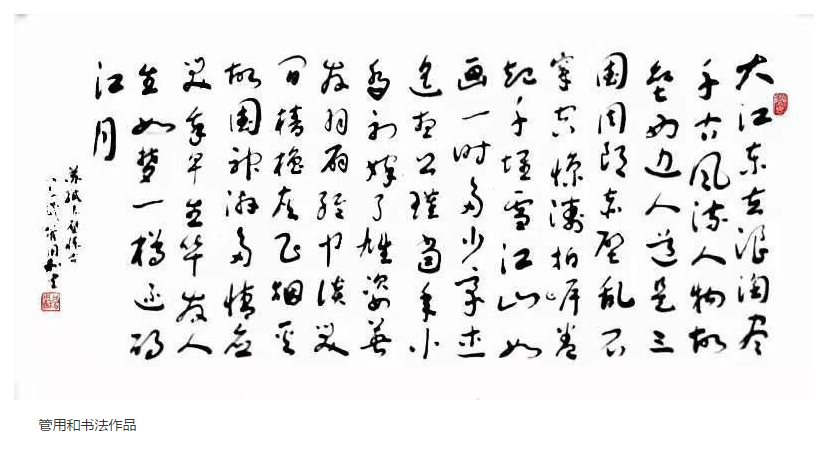 大江东去浪淘尽
千古风流人物故
垒西边人道是三
国周郎赤壁乱石
穿空惊涛拍岸卷
起千堆雪江山如
画一时多少豪杰
遥想公瑾当年小
乔初嫁了雄姿英
发羽扇纶巾谈笑
间樯橹灰飞烟灭
故国神游多情应
笑我早生华发人
生如梦一樽还酹
江月
苏轼赤壁怀古
管用和书
管用和书法作品